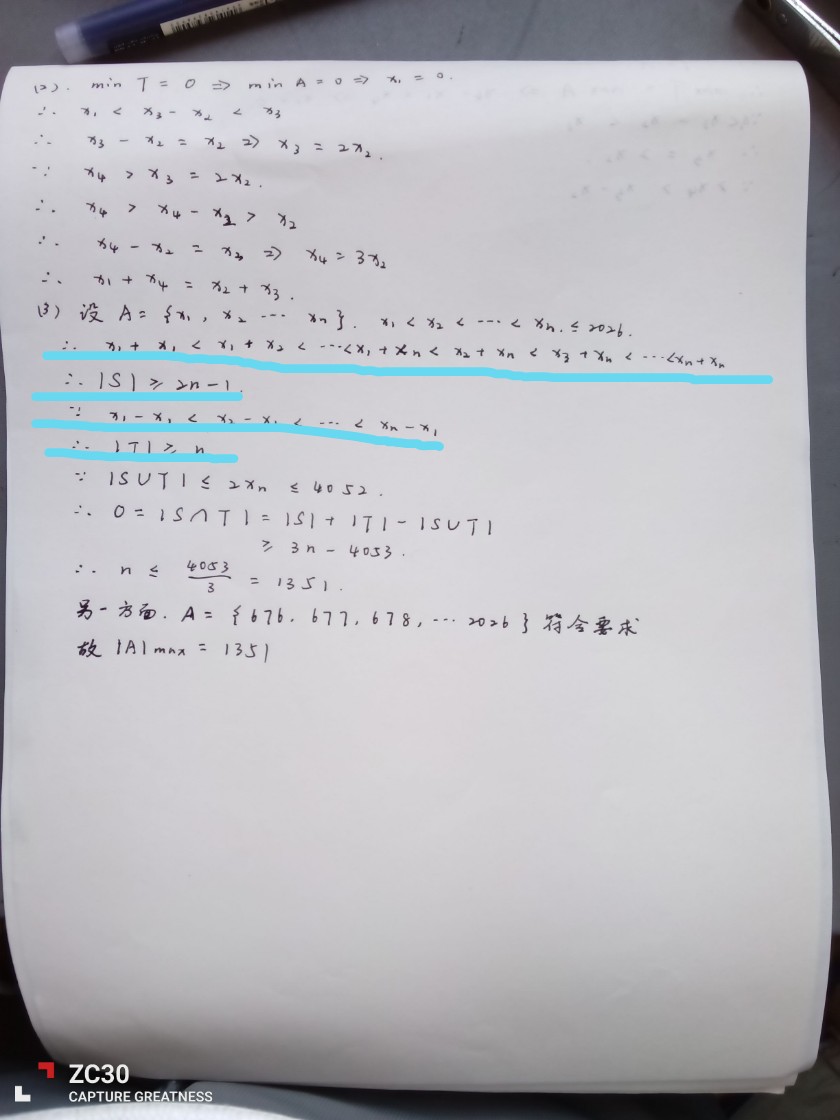 (2). min T = 0 ⇒ min A = 0 ⇒ x₁ = 0.
∴ x₁ < x₃ - x₂ < x₃
∴ x₃ - x₂ = x₂ ⇒ x₃ = 2x₂.
∵ x₄ > x₃ = 2x₂.
∴ x₄ > x₄ - x₂ > x₂
∴ x₄ - x₂ = x₃ ⇒ x₄ = 3x₂
∴ x₁ + x₄ = x₂ + x₃.
(3) 设 A = {x₁, x₂ ⋯ xₙ}. x₁ < x₂ < ⋯ < xₙ. ≤ 2026.
∴ x₁ + x₁ < x₁ + x₂ < ⋯ < x₁ + xₙ < x₂ + xₙ < x₃ + xₙ < ⋯ < xₙ + xₙ
∴ |S| ≥ 2n - 1.
∵ x₁ - x₁ < x₂ - x₁ < ⋯ < xₙ - x₁
∴ |T| ≥ n
∵ |S∪T| ≤ 2xₙ ≤ 4052.
∴ 0 = |S∩T| = |S| + |T| - |S∪T|
≥ 3n - 4053.
∴ n ≤ 4053/3 = 1351.
另一方面. A = {676, 677, 678, ⋯ 2026} 符合要求
故 |A|max = 1351
ZC30
CAPTURE GREATNESS